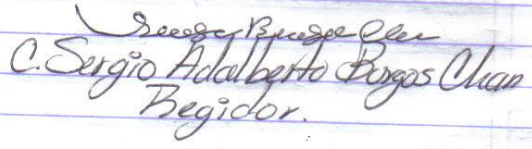 C. Sergio Adalberto Borgos Chan
Regidor.